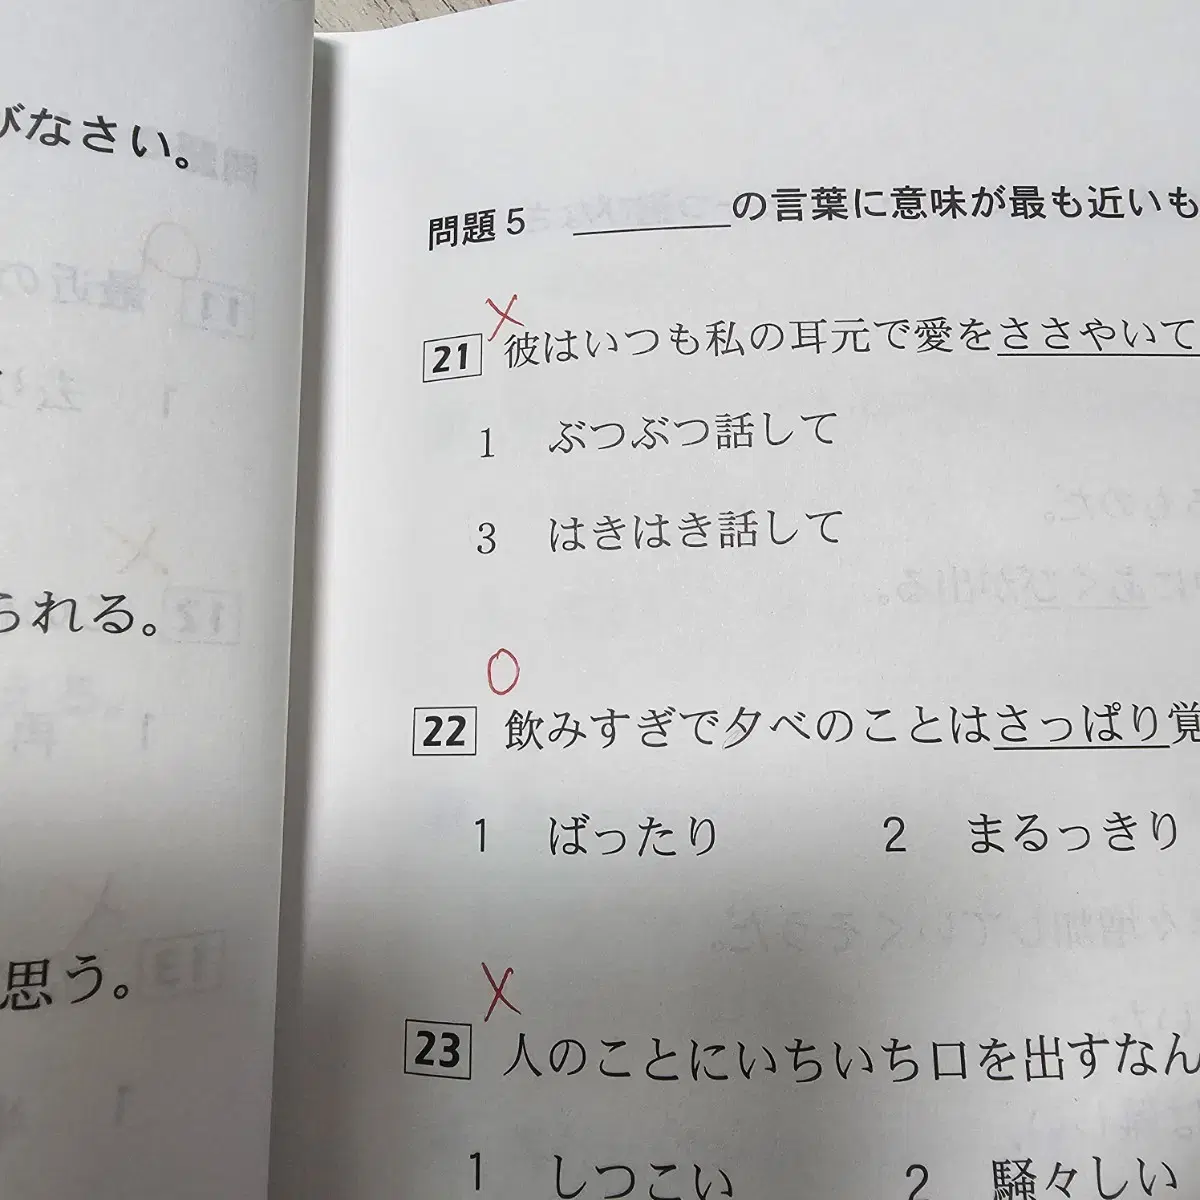 びなさい。
られる。
思う。
問題5 の言葉に意味が最も近いも
21 彼はいつも私の耳元で愛をささやいて
1 ぶつぶつ話して
3 はきはき話して
22 飲みすぎで夕べのことはさっぱり覚
1 ばったり 2 まるっきり
23 人のことにいちいち口を出すなん
1 しつこい 2 騒々しい